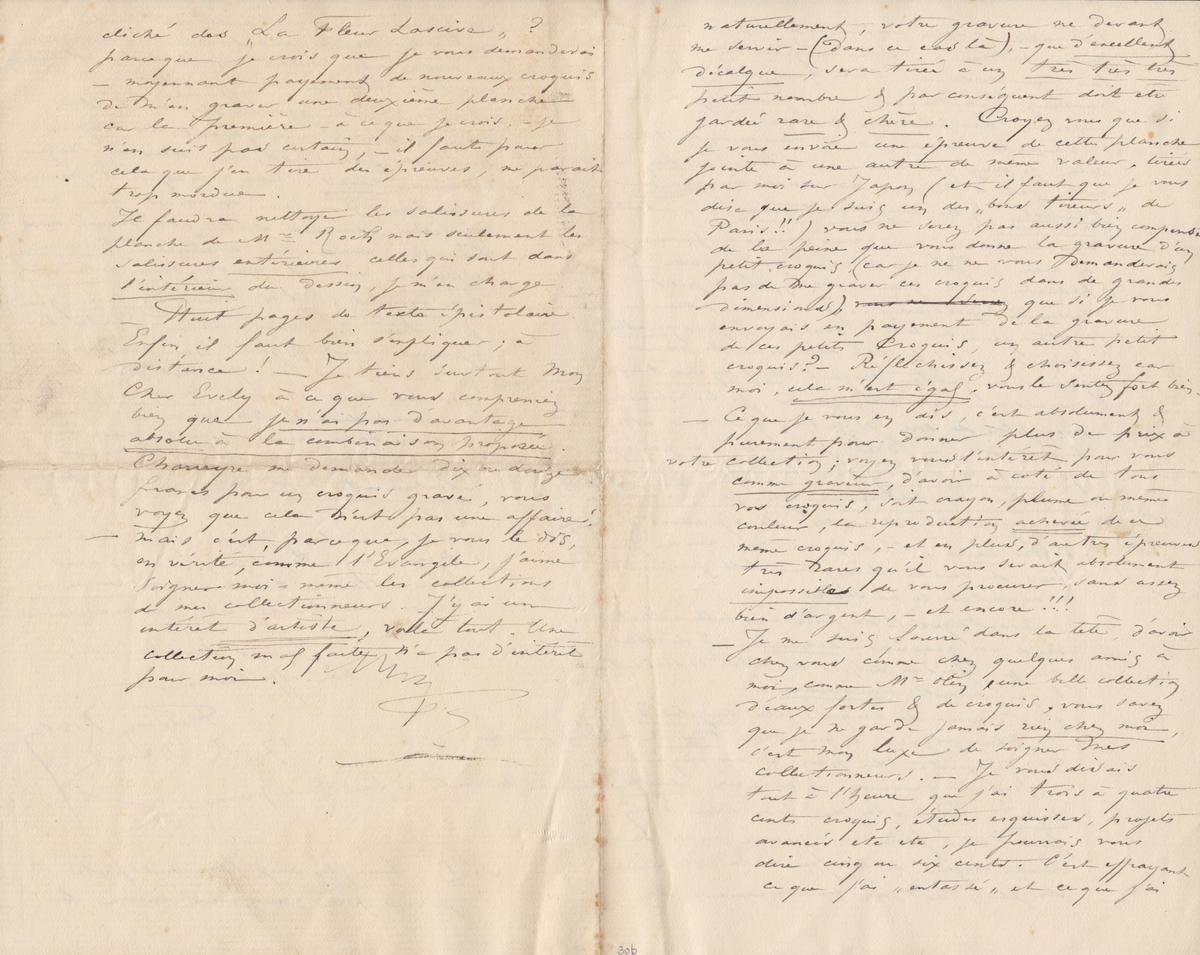 cliché des „La Fleur Lascive„ ?
parceque je crois que je vous demanderai
– moyennant payement de nouveaux croquis
de m'en graver une deuxième planche
car la première – à ce que je crois, – je
n'en suis pas certain, – il faute pour
cela que j'en tire des épreuves, me parait
trop mordue.
Il faudra nettoyer les salissures de la
planche de Mr Roch mais seulement les
salissures extérieures celles qui sont dans
l'intérieur du dessin, je m'en charge.
– Huit pages de texte épistolaire.
Enfin il faut bien s'expliquer ; à
distance ! — Je tiens surtout Mon
Cher Evely à ce que vous compreniez
bien que je n'ai pas d'avantage
absolu à la combinaison proposée.
me demande dix ou douze
francs pour un croquis gravé, vous
voyez que cela n'est pas une affaire,
– mais c'est, parceque, je vous le dis,
en vérité, comme l'Evangile, j'aime
soigner moi-même les collections
de mes collectionneurs. J'y ai un
intérêt d'artiste, voilà tout. Une
collection mal faite, n'a pas d'intérêt
pour moi.
naturellement, votre gravure ne devant
me servir – (dans ce cas là), – que d'excellent
décalque, sera tirée à un très très très
petit nombre & par conséquent doit etre
gardée rare & chère. Croyez vous que si
je vous envoie une épreuve de cette planche
jointe à une autre de même valeur, tirée
par moi sur Japon (et il faut que je vous
dise que je suis un des „bons tireurs„ de
Paris!!) vous ne serez pas aussi bien compensé
de la peine que vous donne la gravure d'un
petit croquis (car je ne ne vous demanderais
pas de me graver ces croquis dans de grandes
dimensions) vous ne serez que si je vous
envoyais en payement de la gravure
de ces petits Croquis, un autre petit
croquis? – Réflechissez & choisissez car
moi, cela m'est égal, vous le sentez fort bien.
– Ce que je vous en dis, c'est absolument &
purement pour donner plus de prix à
votre collection ; voyez vous l'intérêt pour vous
comme graveur, d'avoir à coté de tous
vos croquis, soit crayon, plume ou même
couleur, la reproduction achevée de ce
même croquis, – et en plus, d'autres épreuves
très rares qu'il vous serait absolument
impossibles de vous procurer, sans assez
bien d'argent, – et encore !!!
– Je me suis fourré dans la tête, d'avoir
chez vous comme chez quelques amis à
moi, comme Mr une belle collection
d'eaux fortes & de croquis, vous savez
que je ne garde jamais rien chez moi,
c'est mon luxe de soigner mes
collectionneurs. – Je vous disais
tout à l'heure que j'ai trois à quatre
cents croquis, études esquisses, projets
avancés etc etc, je pourrais vous
dire cinq ou six cents. C'est effrayant
ce que j'ai „entassé„ et ce que j'ai
30b